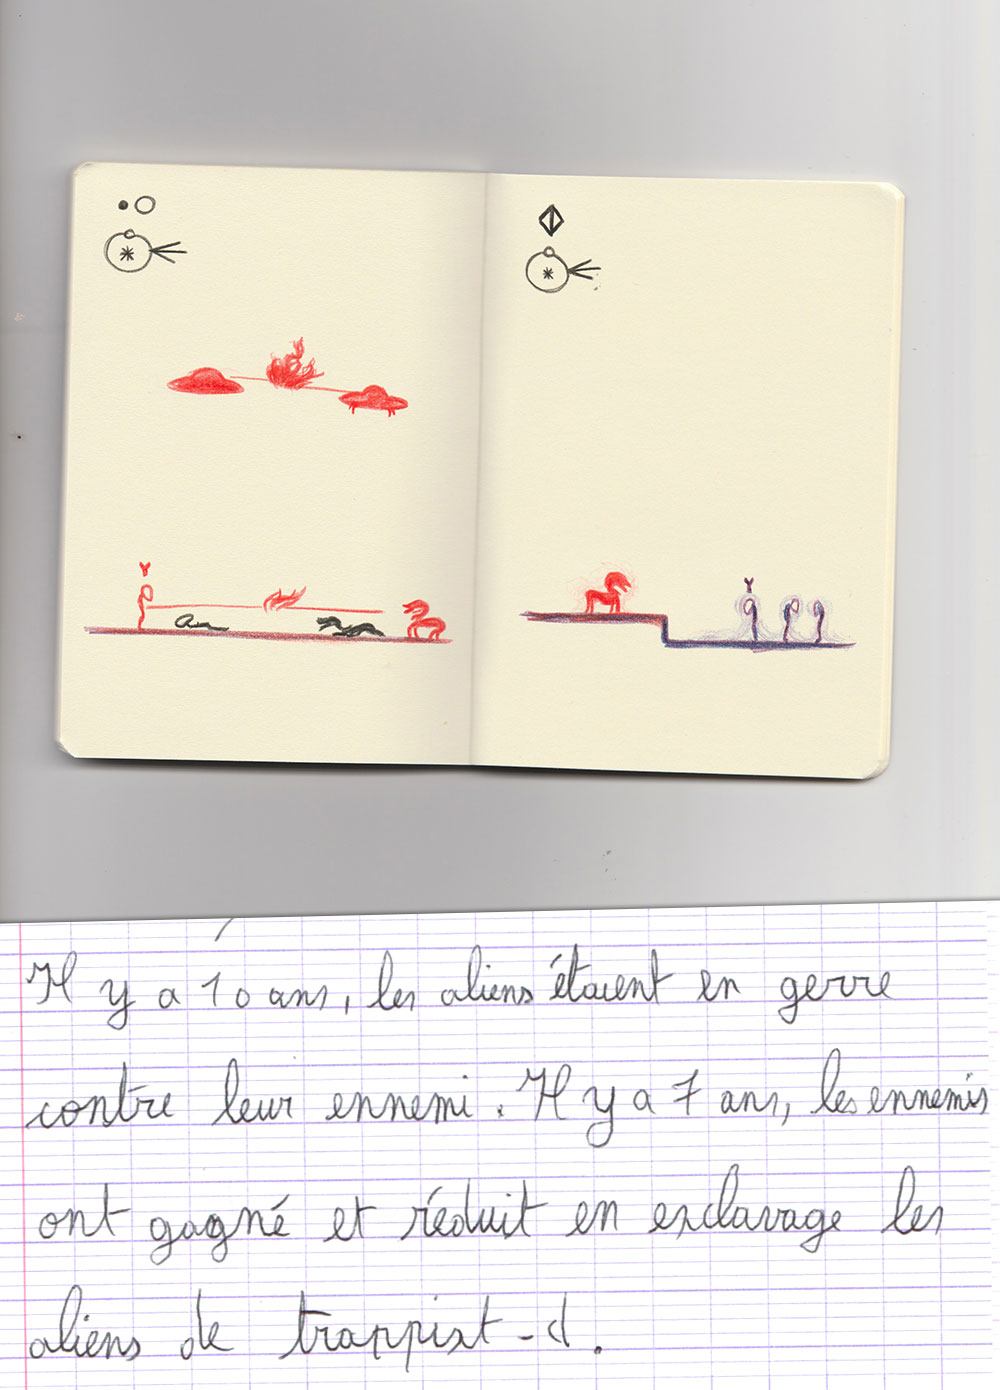 Il y a 10 ans, les aliens étaient en gerre
contre leur ennemi. Il y a 7 ans, les ennemis
ont gagné et réduit en esclavage les
aliens de trappist-d.